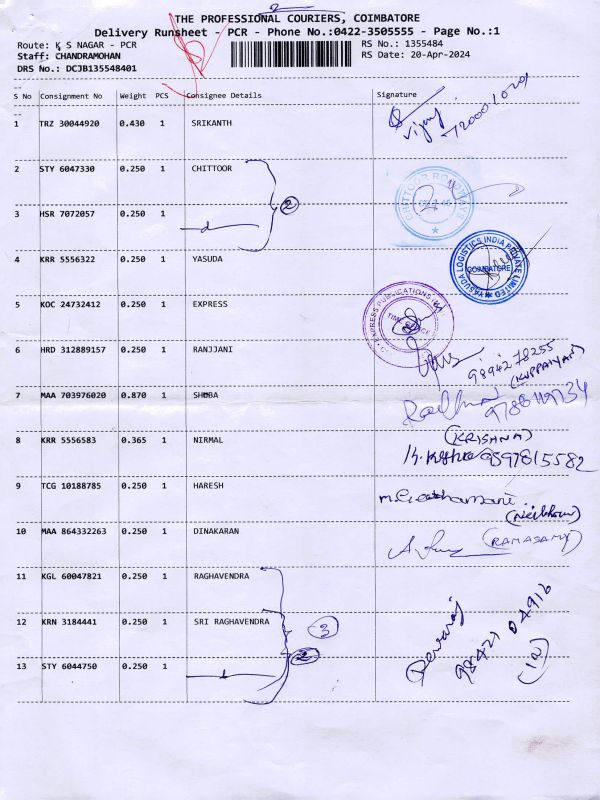 2
THE PROFESSIONAL COURIERS, COIMBATORE
Delivery Runsheet - PCR - Phone No.:0422-3505555 - Page No.:1
Route: K S NAGAR - PCR
RS No.: 1355484
Staff: CHANDRAMOHAN
RS Date: 20-Apr-2024
DRS No.: DCJB135548401
S No Consignment No Weight PCS Consignee Details Signature
1 TRZ 30044920 0.430 1 SRIKANTH Vijay
2 STY 6047330 0.250 1 CHITTOOR
CHITTOOR ROADWAYS
3 HSR 7072057 0.250 1
2
4 KRR 5556322 0.250 1 YASUDA
YASUDA LOGISTICS INDIA PRIVATE LIMITED
COIMBATORE
5 KOC 24732412 0.250 1 EXPRESS
EXPRESS PUBLICATIONS
6 HRD 312889157 0.250 1 RANJJANI
9894278255
(KUPPAIYAN)
7 MAA 703976020 0.870 1 SHOBA
8 KRR 5556583 0.365 1 NIRMAL
(KRISHNA)
9597815582
9 TCG 10188785 0.250 1 HARESH
10 MAA 864332263 0.250 1 DINAKARAN
(RAMASAMY)
11 KGL 60047821 0.250 1 RAGHAVENDRA
12 KRN 3184441 0.250 1 SRI RAGHAVENDRA
3
13 STY 6044750 0.250 1
2
Devaraj
98421 04916